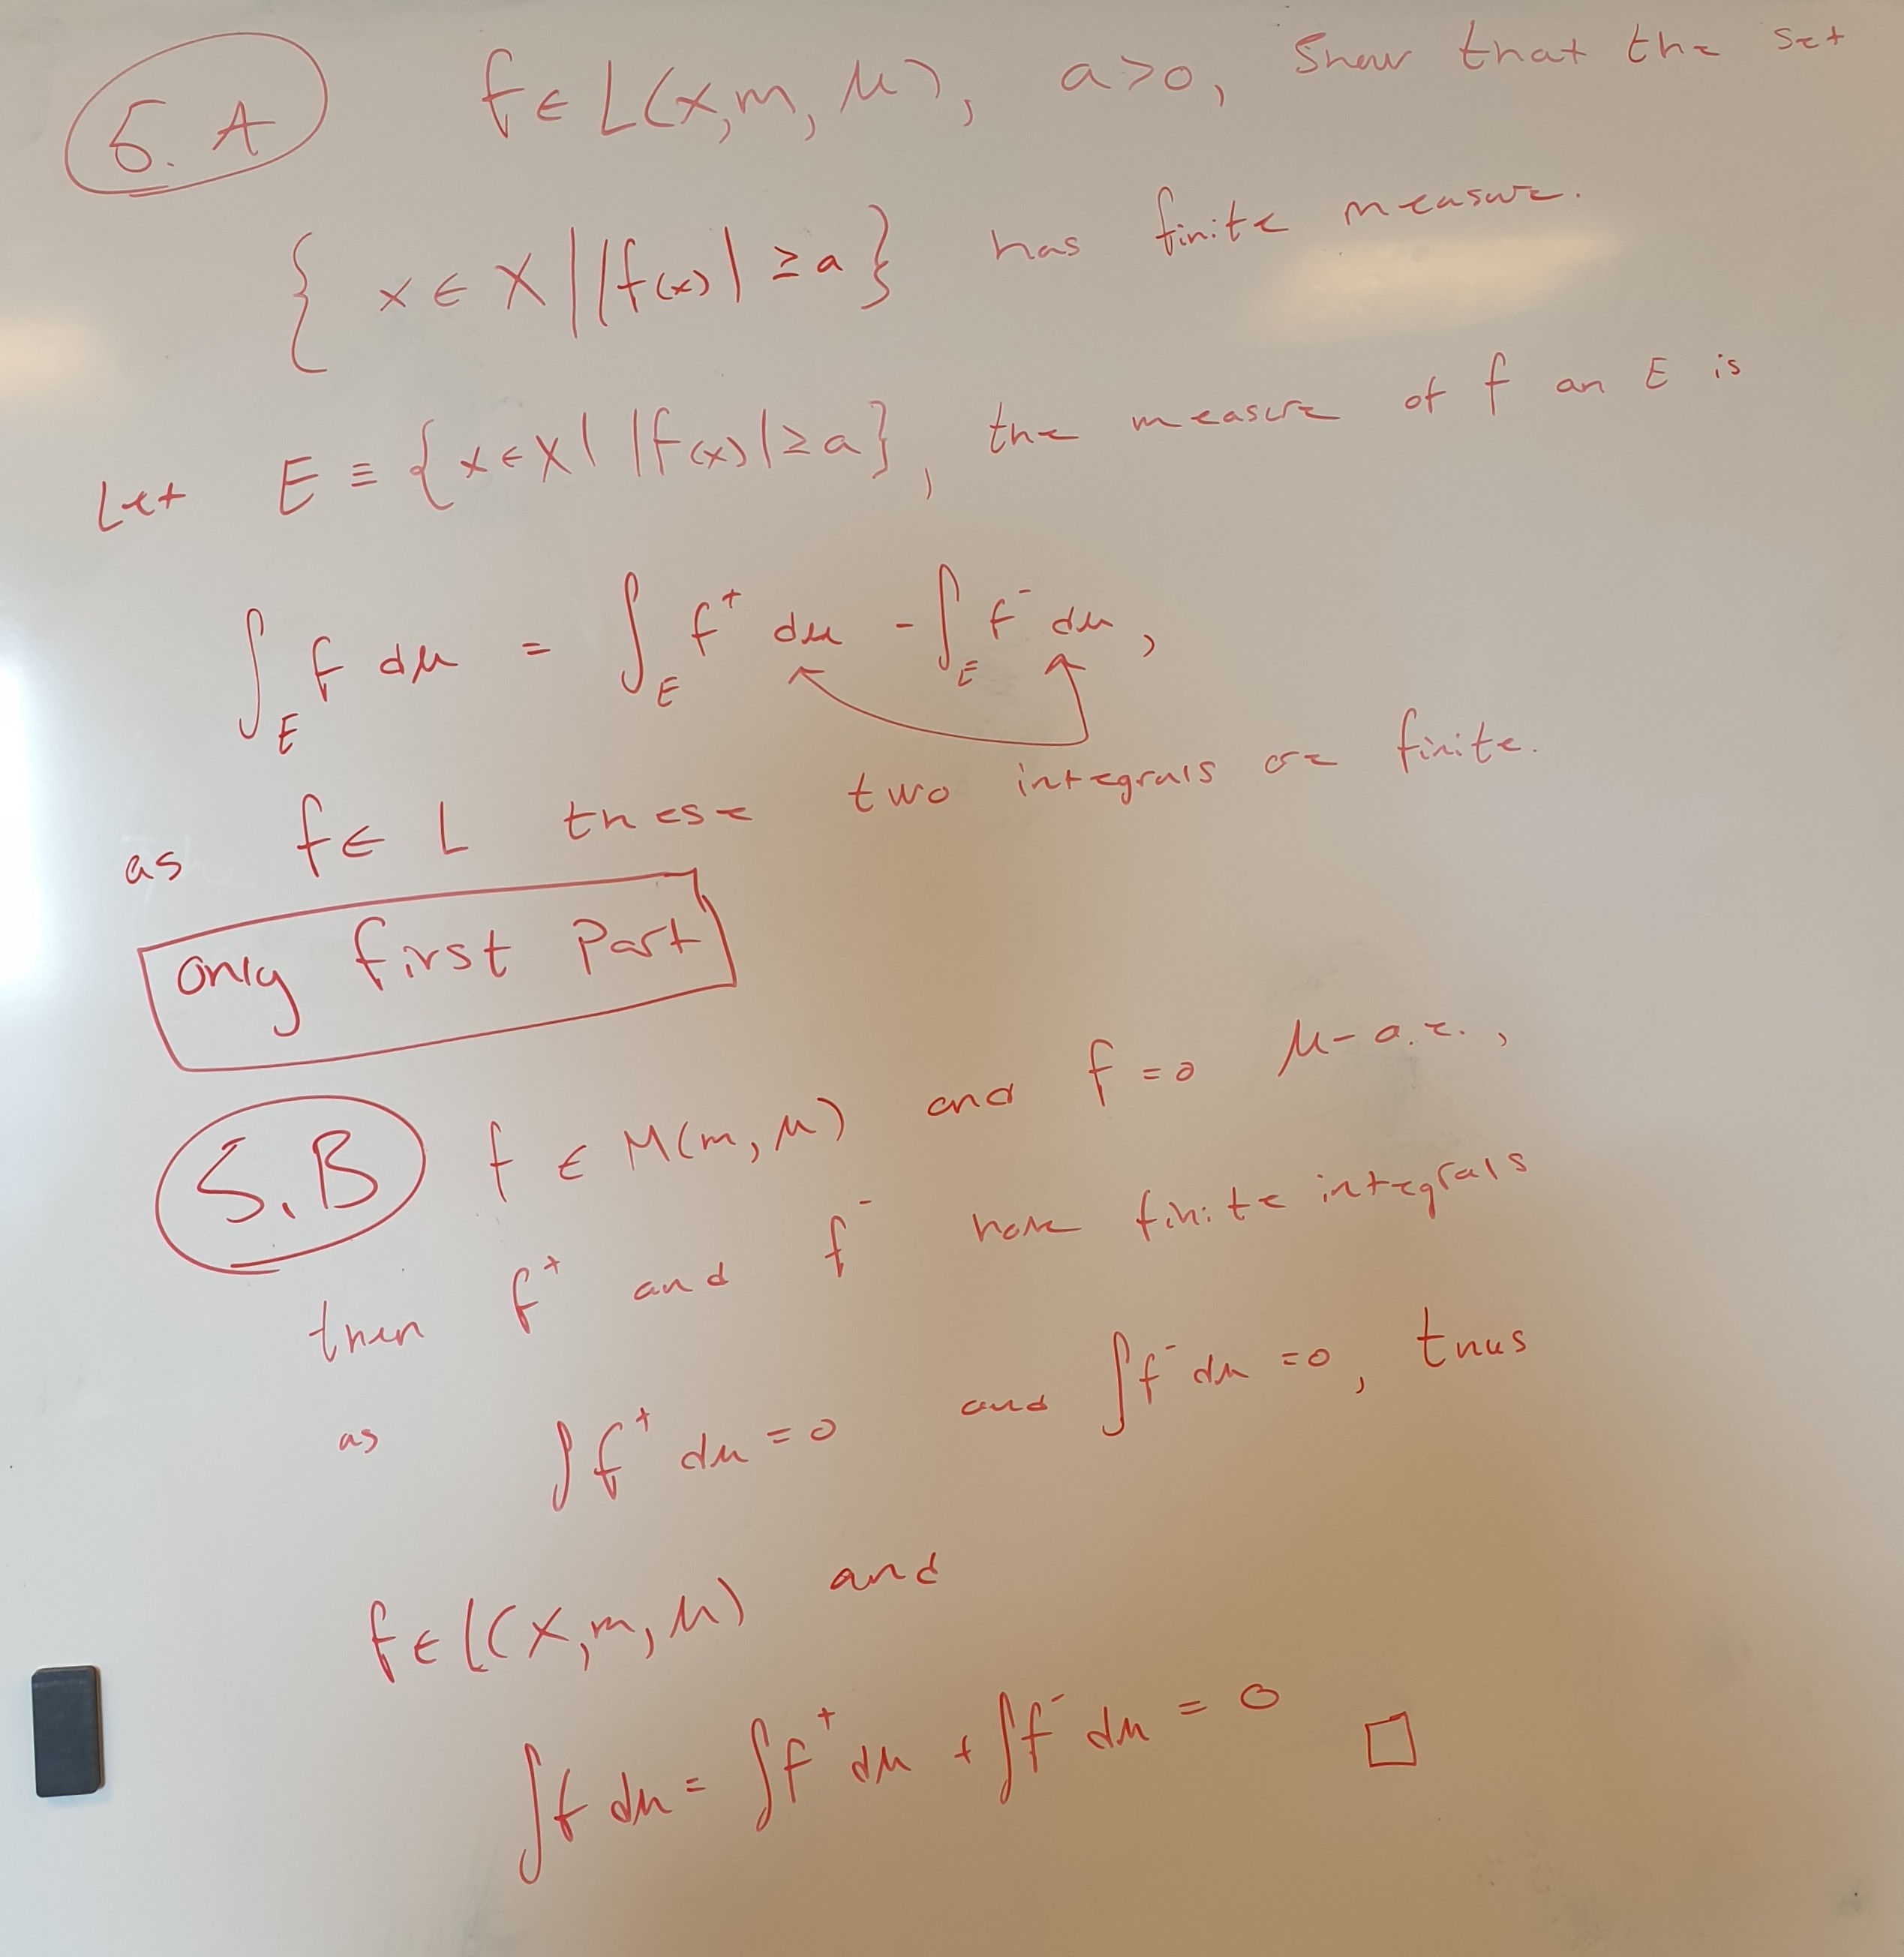 5.A f ∈ L(X, m, μ), a>0, Show that the set
{ x ∈ X | |f(x)| ≥ a } has finite measure.
Let E ≡ { x ∈ X | |f(x)| ≥ a }, the measure of f on E is
∫_E f dμ = ∫_E f⁺ dμ - ∫_E f⁻ dμ,
as f ∈ L these two integrals are finite.
only first Part
5.B f ∈ M(m, μ) and f = 0 μ-a.e.,
then f⁺ and f⁻ have finite integrals
as ∫f⁺ dμ = 0 and ∫f⁻ dμ = 0, thus
f ∈ L(X, m, μ) and
∫f dμ = ∫f⁺ dμ + ∫f⁻ dμ = 0 □